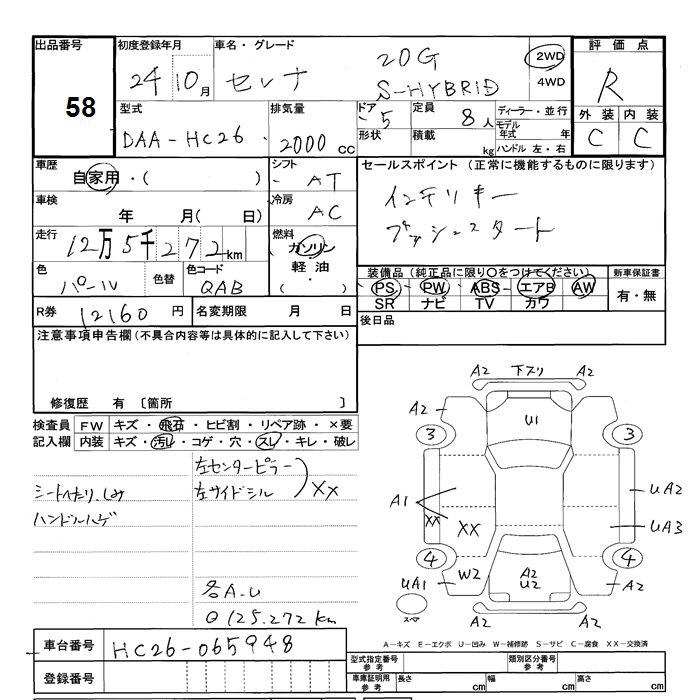 出品番号 初度登録年月 車名・グレード 評価点
58 24年 10月 セレナ 20G S-HYBRID 2WD 4WD R
型式 排気量 ドア 5 定員 8人 ディーラー・並行 外装 内装
DAA-HC26 2000cc 形状 積載 kg モデル年式 年 C C
ハンドル 左・右
車歴 シフト セールスポイント (正常に機能するものに限ります)
自家用・( ) AT インテリキー
車検 冷房 プッシュスタート
年 月( 日) AC
走行 燃料
12万5千272km ガソリン・軽油・( )
色 色替 色コード 装備品(純正品に限り〇をつけてください) 新車保証書
パール QAB PS PW ABS エアB AW 有・無
SR ナビ TV カワ
R券 12160円 名変期限 月 日 後日品
注意事項申告欄(不具合内容等は具体的に記入して下さい)
修復歴 有 〔箇所 〕
検査員記入欄 FW キズ・飛石・ヒビ割・リペア跡・×要
内装 キズ・汚れ・コゲ・穴・スレ・キレ・破レ
左センターピラー
左サイドシル XX
シートへたり、しみ
ハンドルハゲ
各A.U
◎125.272km
A2 下スリ A2
A2 U1 A2
3 3
A1 UA2
XX XX UA3
4 4
UA1 W2 A2 U2 A2
スペア A2 A2
A-キズ E-エクボ U-凹み W-補修跡 S-サビ C-腐食 XX-交換済
車台番号 HC26-065948
登録番号
型式指定番号 参考 類別区分番号 参考
車庫証明用 参考 長さ cm 幅 cm 高さ cm